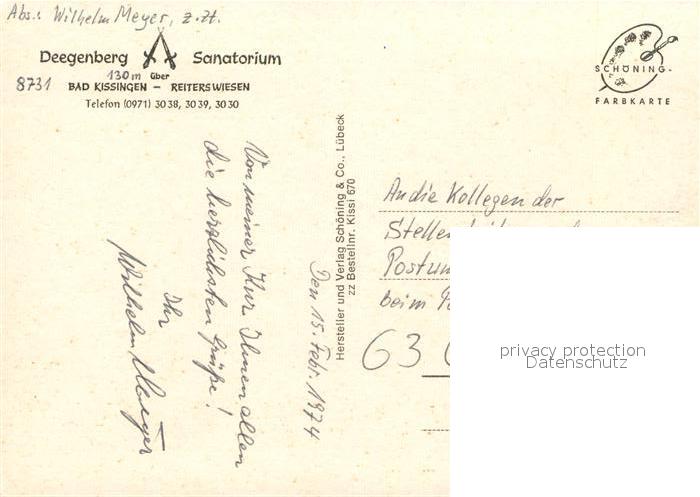 Abs.: Wilhelm Meyer, z.Zt.
Deegenberg Sanatorium
130 m über
8731 BAD KISSINGEN – REITERSWIESEN
Telefon (0971) 30 38, 30 39, 30 30
SCHÖNING-
FARBKARTE
Den 15. Febr. 1974
Von meiner Kur Ihnen allen
die herzlichsten Grüße!
Ihr
Wilhelm Meyer
Hersteller und Verlag Schöning & Co., Lübeck
zz Bestellnr. Kissi 670
An die Kollegen der
beim
63
privacy protection
Datenschutz